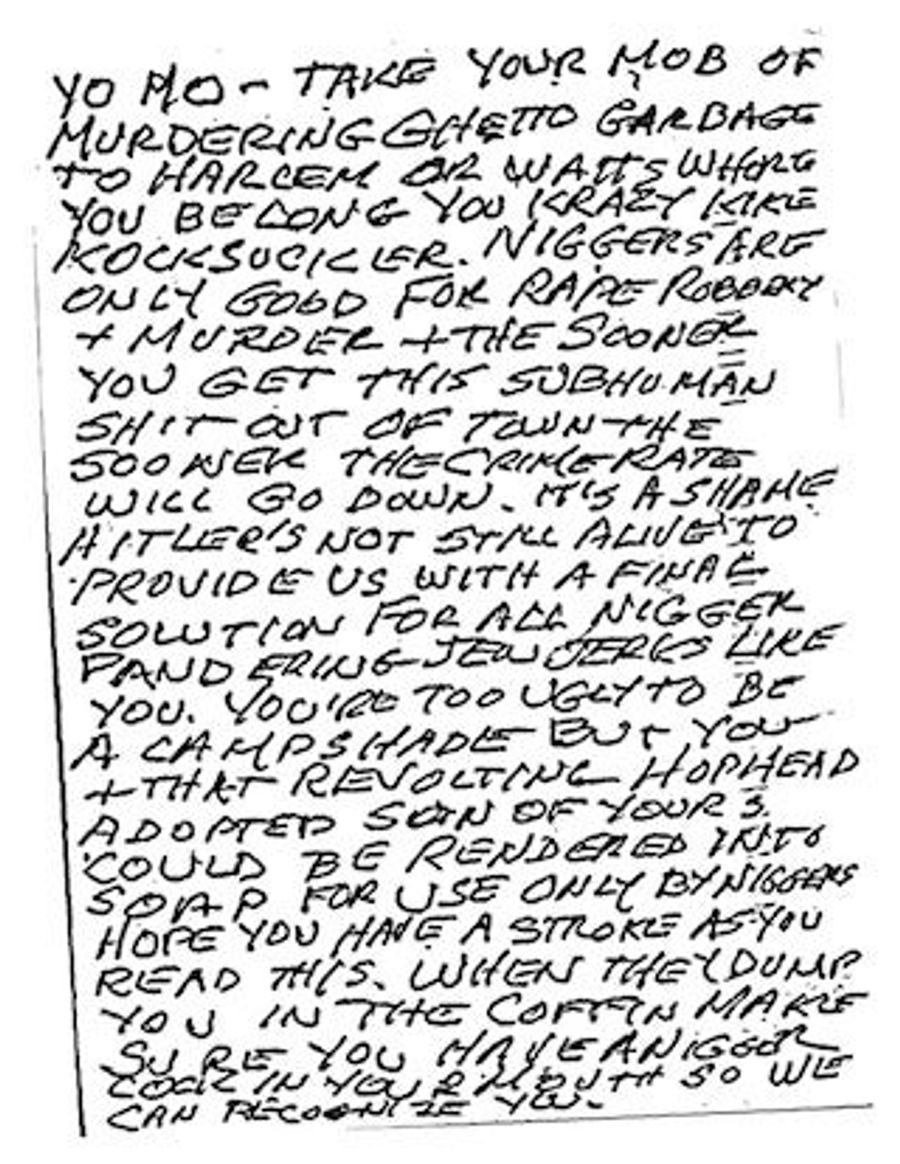 YO MO - TAKE YOUR MOB OF
MURDERING GHETTO GARBAGE
TO HARLEM OR WATTS WHERE
YOU BELONG YOU KRAZY KIKE
KOCKSUCKLER. NIGGERS ARE
ONLY GOOD FOR RAPE ROBBERY
+ MURDER + THE SOONER
YOU GET THIS SUBHUMAN
SHIT OUT OF TOWN THE
SOONER THE CRIME RATE
WILL GO DOWN. IT'S A SHAME
HITLER'S NOT STILL ALIVE TO
PROVIDE US WITH A FINAL
SOLUTION FOR ALL NIGGER
PANDERING JEW JERKS LIKE
YOU. YOU'RE TOO UGLY TO BE
A LAMPSHADE BUT YOU
+ THAT REVOLTING HOPHEAD
ADOPTED SON OF YOURS
COULD BE RENDERED INTO
SOAP FOR USE ONLY BY NIGGERS
HOPE YOU HAVE A STROKE AS YOU
READ THIS. WHEN THEY DUMP
YOU IN THE COFFIN MAKE
SURE YOU HAVE A NIGGER
COCK IN YOUR MOUTH SO WE
CAN RECOGNIZE YOU.